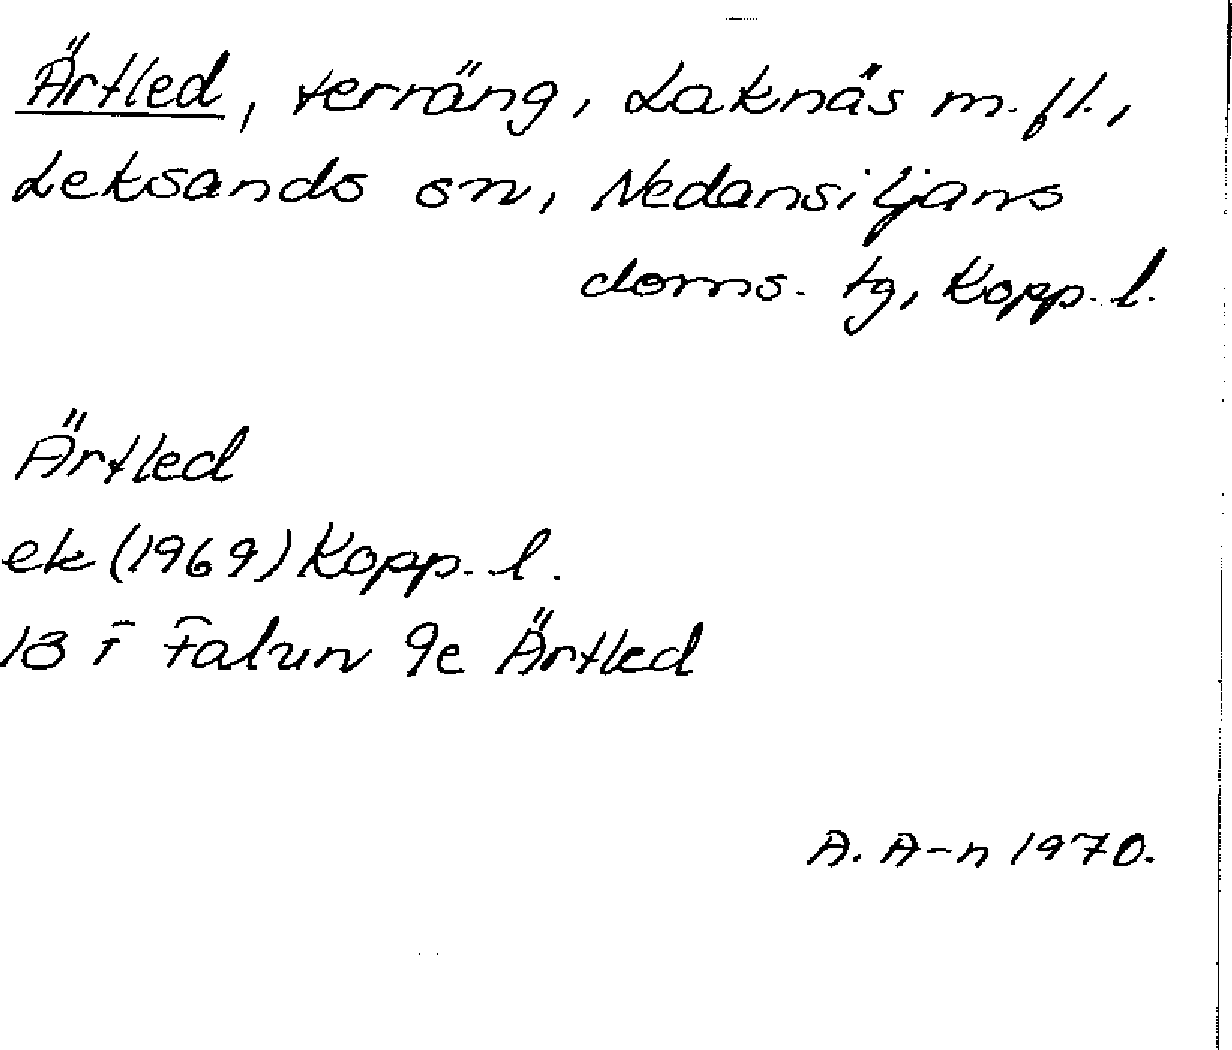 Ärtled, terräng, Laknäs m.fl.,
Leksands sn, Nedansiljans
doms. tg, Kopp. l.
Ärtled
ek (1969) Kopp. l.
13 F Falun 9e Ärtled
A. A-n 1970.